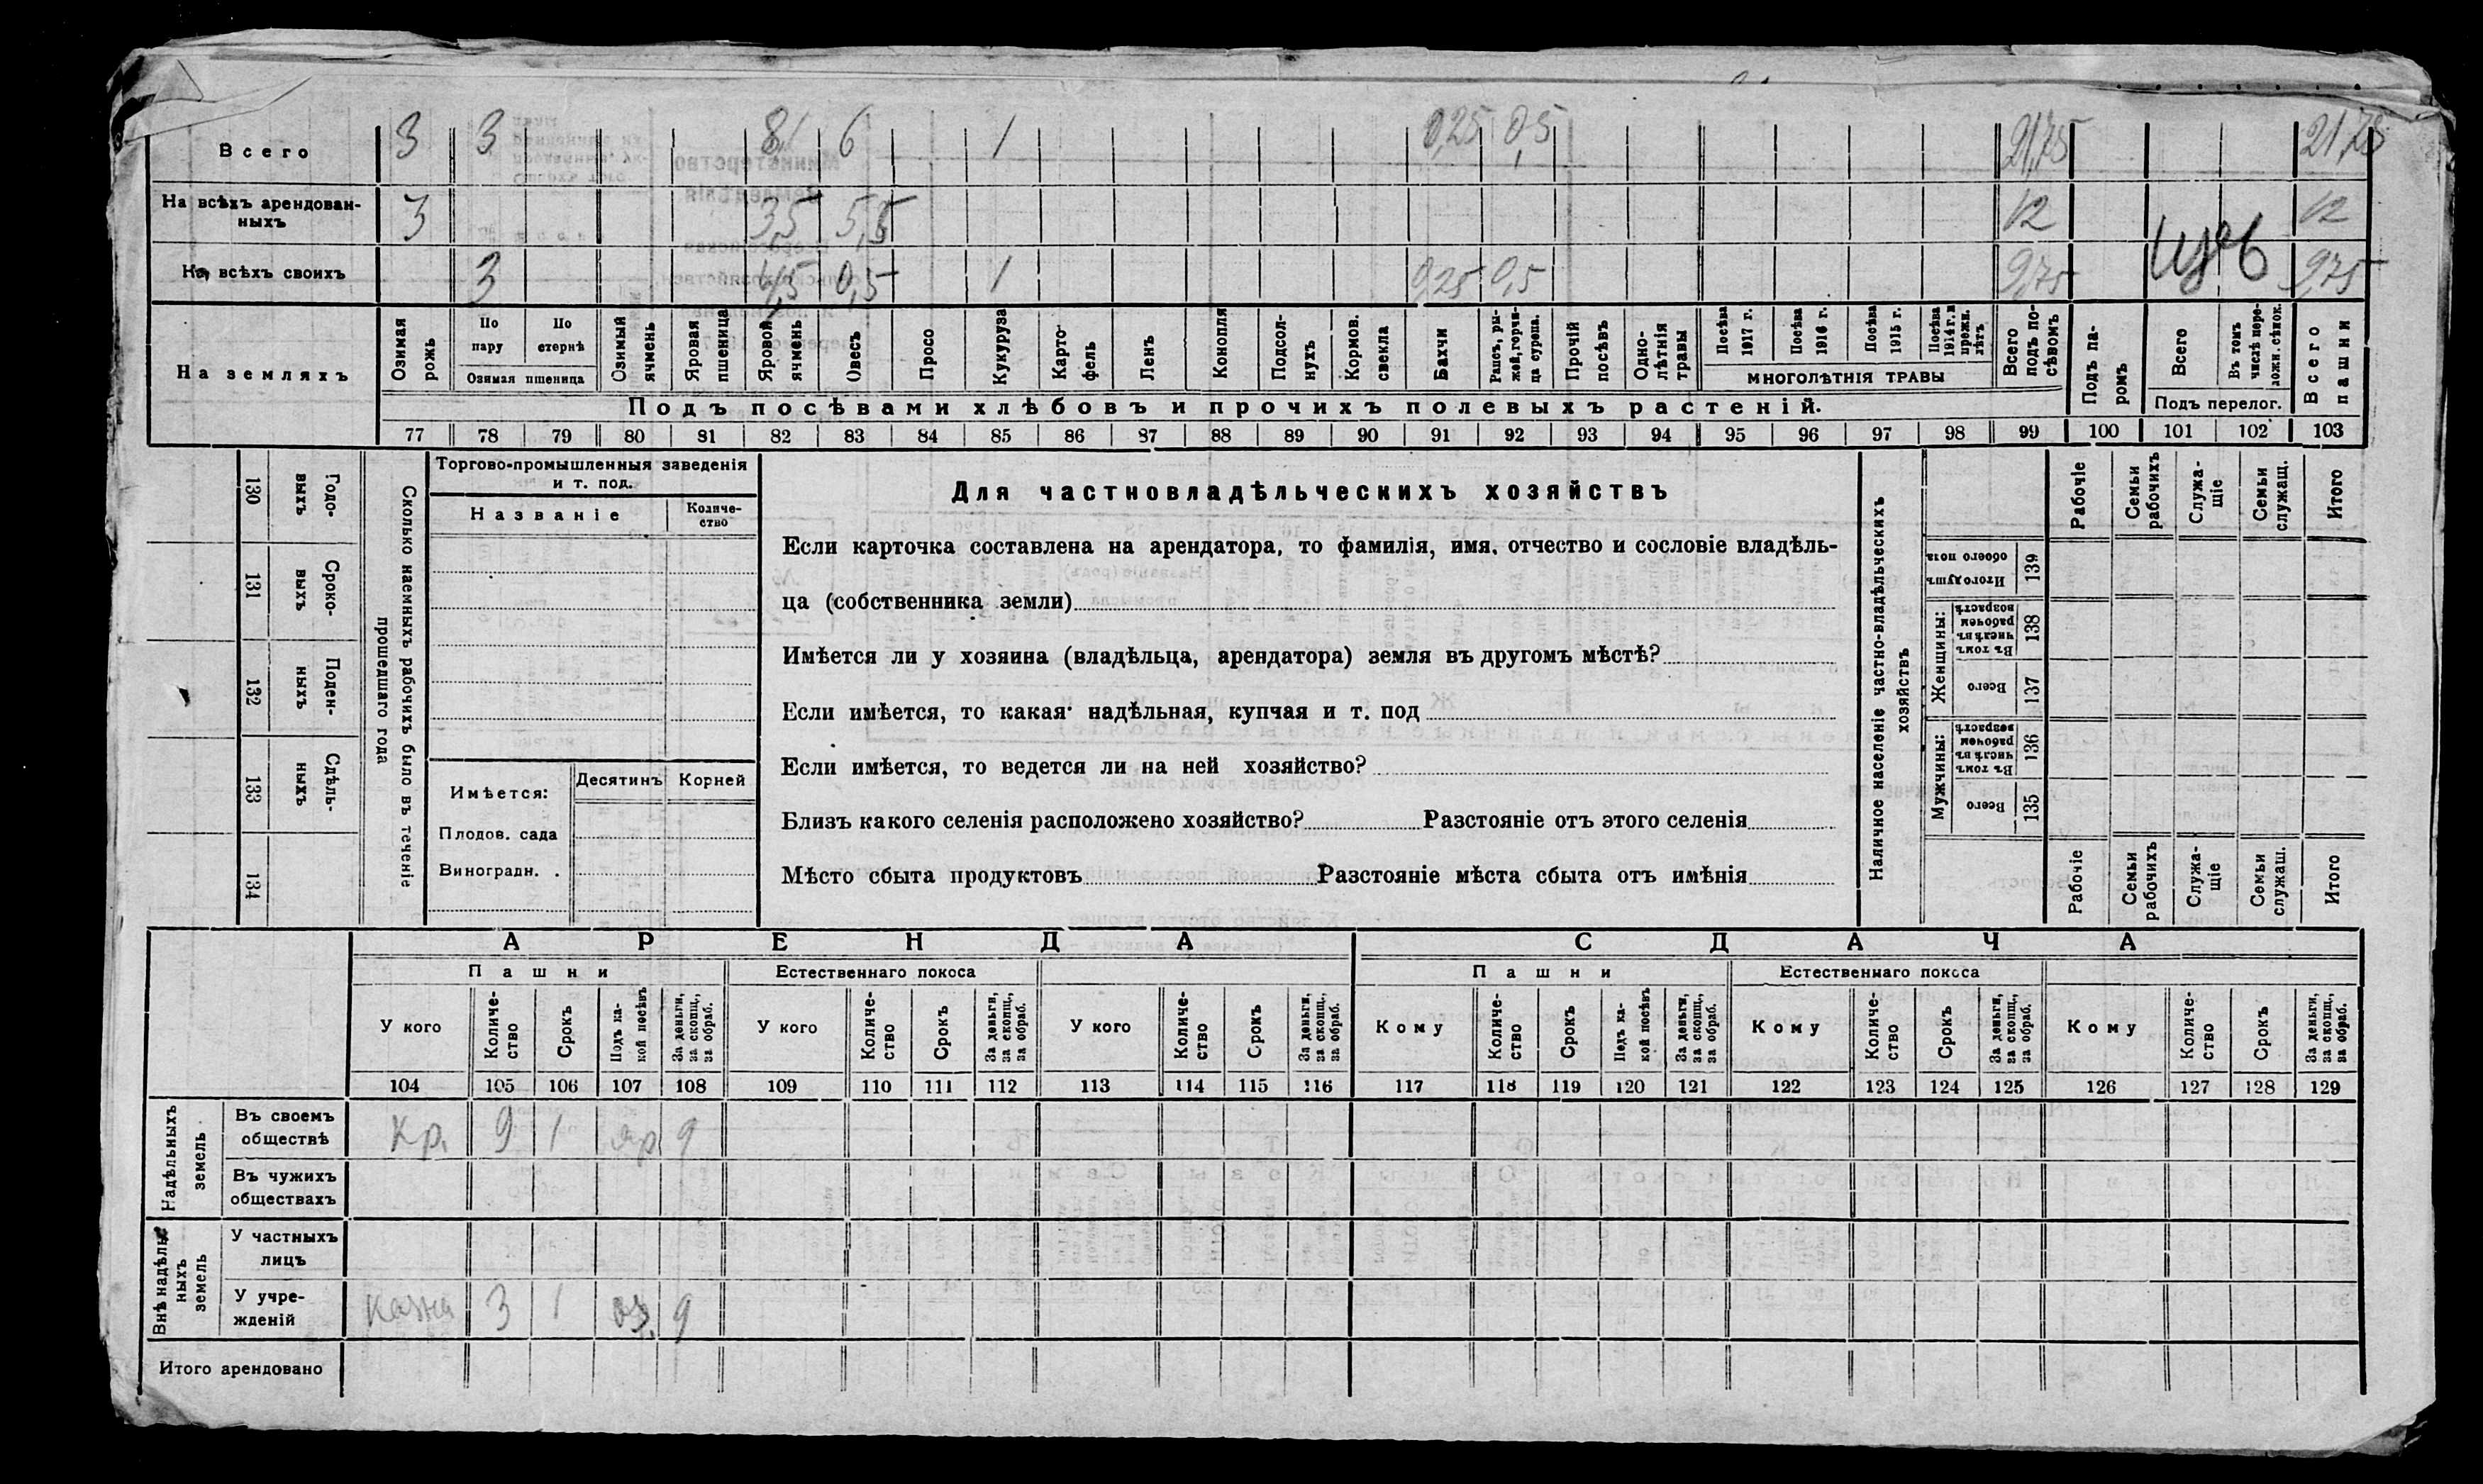 Всего 3 3 8 6 1 0,25 0,5 21,75 21,75
На всѣхъ арендован-
ныхъ 3 3,5 5,5 12 12
На всѣхъ своихъ 3 4,5 0,5 1 0,25 0,5 9,75 9,75
На земляхъ
Озимая рожь
По пару
По стернѣ
Озимая пшеница
Озимый ячмень
Яровая пшеница
Яровой ячмень
Овесъ
Просо
Кукуруза
Карто-
фель
Ленъ
Конопля
Подсол-
нухъ
Кормов.
свекла
Бахчи
Рапсъ, ры-
жей, горчи-
ца сурепа.
Прочій
посѣвъ
Одно-
лѣтнія
травы
Посѣва
1917 г.
Посѣва
1916 г.
Посѣва
1915 г.
Посѣва
1914 г. и
прежн.
лѣтъ
МНОГОЛѢТНІЯ ТРАВЫ
Всего
подъ по-
сѣвомъ
Подъ па-
ромъ
Всего
Въ томъ
числѣ пере-
ложн. сѣнок.
Подъ перелог.
Всего
пашни
Подъ посѣвами хлѣбовъ и прочихъ полевыхъ растеній.
77 78 79 80 81 82 83 84 85 86 87 88 89 90 91 92 93 94 95 96 97 98 99 100 101 102 103
130 Годо-
выхъ
131 Сроко-
выхъ
132 Поден-
ныхъ
133 Сдѣль-
ныхъ
134
Сколько наемныхъ рабочихъ было въ теченіе
прошедшаго года
Торгово-промышленныя заведенія
и т. под.
Названіе
Количе-
ство
Имѣется:
Десятинъ Корней
Плодов. сада
Виноградн. .
Для частновладѣльческихъ хозяйствъ
Если карточка составлена на арендатора, то фамилія, имя, отчество и сословіе владѣль-
ца (собственника земли)
Имѣется ли у хозяина (владѣльца, арендатора) земля въ другомъ мѣстѣ?
Если имѣется, то какая: надѣльная, купчая и т. под
Если имѣется, то ведется ли на ней хозяйство?
Близъ какого селенія расположено хозяйство? Разстояніе отъ этого селенія
Мѣсто сбыта продуктовъ Разстояніе мѣста сбыта отъ имѣнія
Наличное населеніе частно-владѣльческихъ
хозяйствъ
Рабочіе
Семьи
рабочихъ
Служа-
щіе
Семьи
служащ.
Итого
Итого душъ
обоего пола
139
Женщины:
Въ томъ
числѣ въ
рабочемъ
возрастѣ
138
Всего
137
Мужчины:
Въ томъ
числѣ въ
рабочемъ
возрастѣ
136
Всего
135
Рабочіе
Семьи
рабочихъ
Служа-
щіе
Семьи
служащ.
Итого
АРЕНДА СДАЧА
Пашни Естественнаго покоса Пашни Естественнаго покоса
У кого
Количе-
ство
Срокъ
Подъ ка-
кой посѣвъ
За деньги,
за скопщ.,
за обраб.
У кого
Количе-
ство
Срокъ
За деньги,
за скопщ.,
за обраб.
У кого
Количе-
ство
Срокъ
За деньги,
за скопщ.,
за обраб.
Кому
Количе-
ство
Срокъ
Подъ ка-
кой посѣвъ
За деньги,
за скопщ.,
за обраб.
Кому
Количе-
ство
Срокъ
За деньги,
за скопщ.,
за обраб.
Кому
Количе-
ство
Срокъ
За деньги,
за скопщ.,
за обраб.
104 105 106 107 108 109 110 111 112 113 114 115 116 117 118 119 120 121 122 123 124 125 126 127 128 129
Надѣльныхъ
земель
Въ своемъ
обществѣ Кр. 9 1 яр. 9
Въ чужихъ
обществахъ
Внѣ надѣль-
ныхъ
земель
У частныхъ
лицъ
У учре-
жденій казна 3 1 оз. 9
Итого арендовано